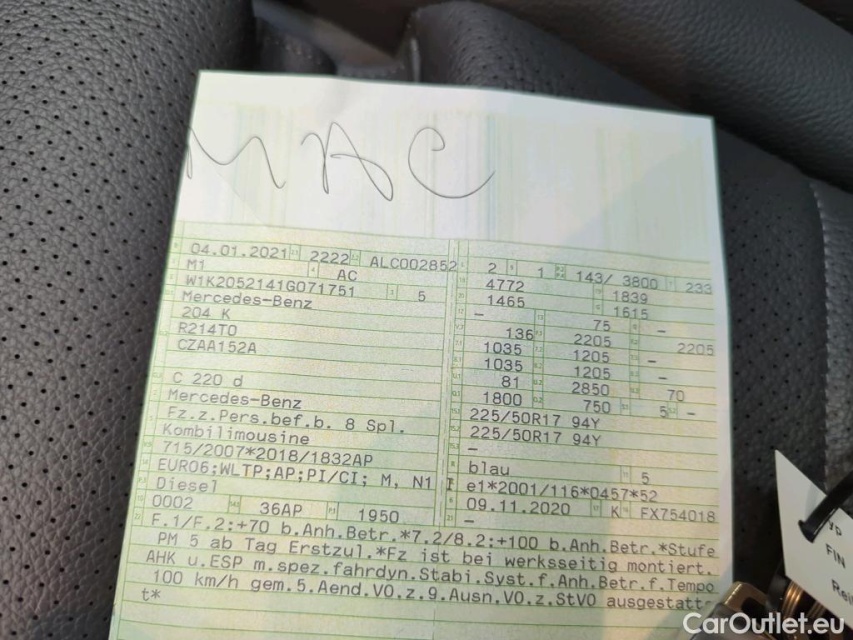 MAC
04.01.2021 2222 ALC002852
M1 AC
W1K2052141G071751 5
Mercedes-Benz
204 K
R214T0
CZAA152A
C 220 d
Mercedes-Benz
Fz.z.Pers.bef.b. 8 Spl.
Kombilimousine
715/2007*2018/1832AP
EURO6;WLTP;AP;PI/CI; M, N1 I
Diesel
0002 36AP 1950
2 1 143/ 3800 233
4772 1839
1465 1615
– 75 –
136 2205 2205
1035 1205 –
1035 1205 –
81 2850 70
1800 750 5 –
225/50R17 94Y
225/50R17 94Y
–
–
blau 5
e1*2001/116*0457*52
09.11.2020 K FX754018
–
F.1/F.2:+70 b.Anh.Betr.*7.2/8.2:+100 b.Anh.Betr.*Stufe
PM 5 ab Tag Erstzul.*Fz ist bei werksseitig montiert.
AHK u.ESP m.spez.fahrdyn.Stabi.Syst.f.Anh.Betr.f.Tempo
100 km/h gem.5.Aend.VO.z.9.Ausn.VO.z.StVO ausgestatt
t*
FIN
CarOutlet.eu